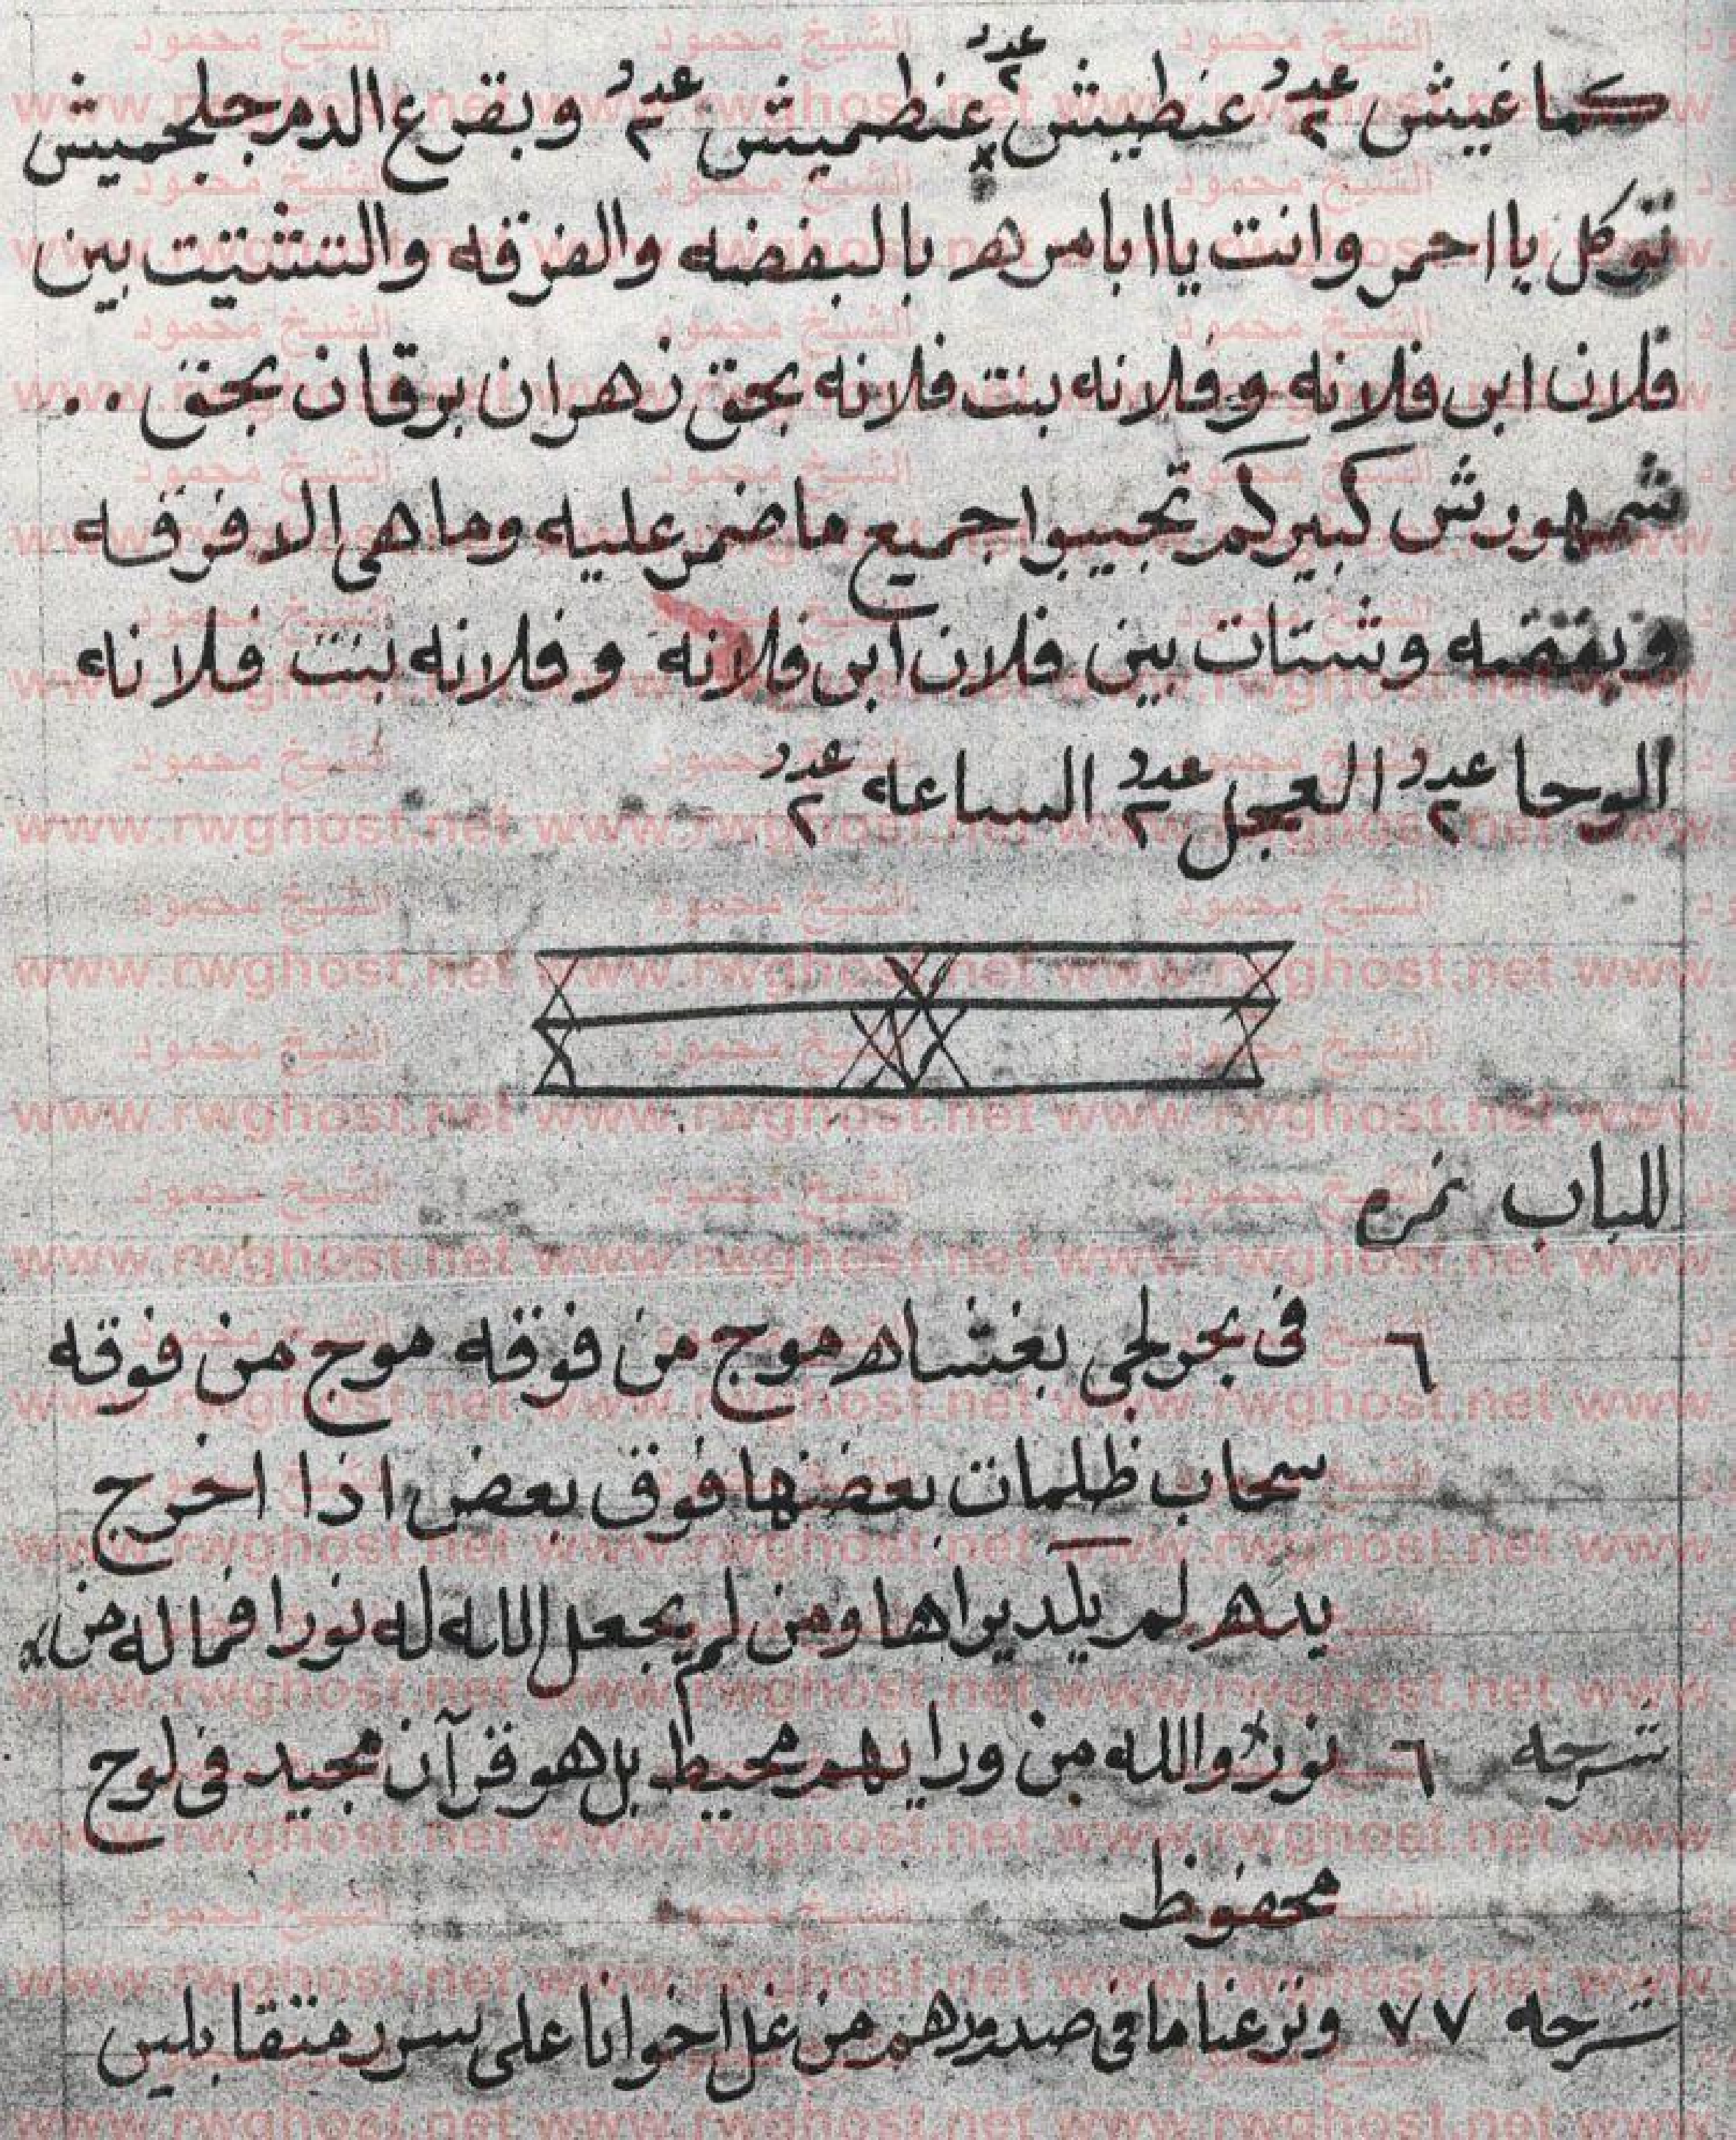 كماغيش عدد ٢ عنطيش عدد ٢ عنطميش عدد ٢ وبقرع الدمرجلجميش
توكل يا احمر وانت يا ابا مره بالبغضه والفرقه والتشتيت بين
فلان ابن فلانه وفلانه بنت فلانه بحق زهران برقان بحق ..
شمهورش كبيركم تجيبوا جميع ما ضمر عليه وما هي الا فرقه
وبغضه وشتات بين فلان ابن فلانه وفلانه بنت فلانه
الوحا عدد ٢ العجل عدد ٢ الساعه عدد ٢
للباب نمره
٦ في بحر لجي يغشاه موج من فوقه موج من فوقه
سحاب ظلمات بعضها فوق بعض اذا اخرج
يده لم يكد يراها ومن لم يجعل الله له نورا فما له من
شرحه ٦ نور والله من ورايهم محيط بل هو قرآن مجيد في لوح
محفوظ
شرحه ٧٧ ونزعنا ما في صدورهم من غل اخوانا على سرر متقابلين
الشيخ محمود
www.rwghost.net